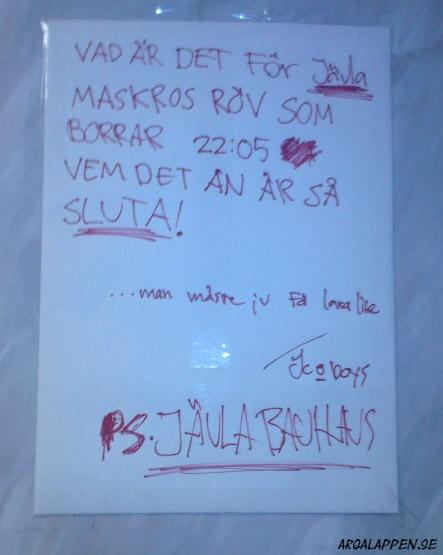 VAD ÄR DET FÖR Jävla
MASKROS RÖV SOM
BORRAR 22:05
VEM DET ÄN ÄR SÅ
SLUTA!
...man måste ju få laxa lite
boys
PS. JÄVLA BAUHAUS
ARGALAPPEN.SE